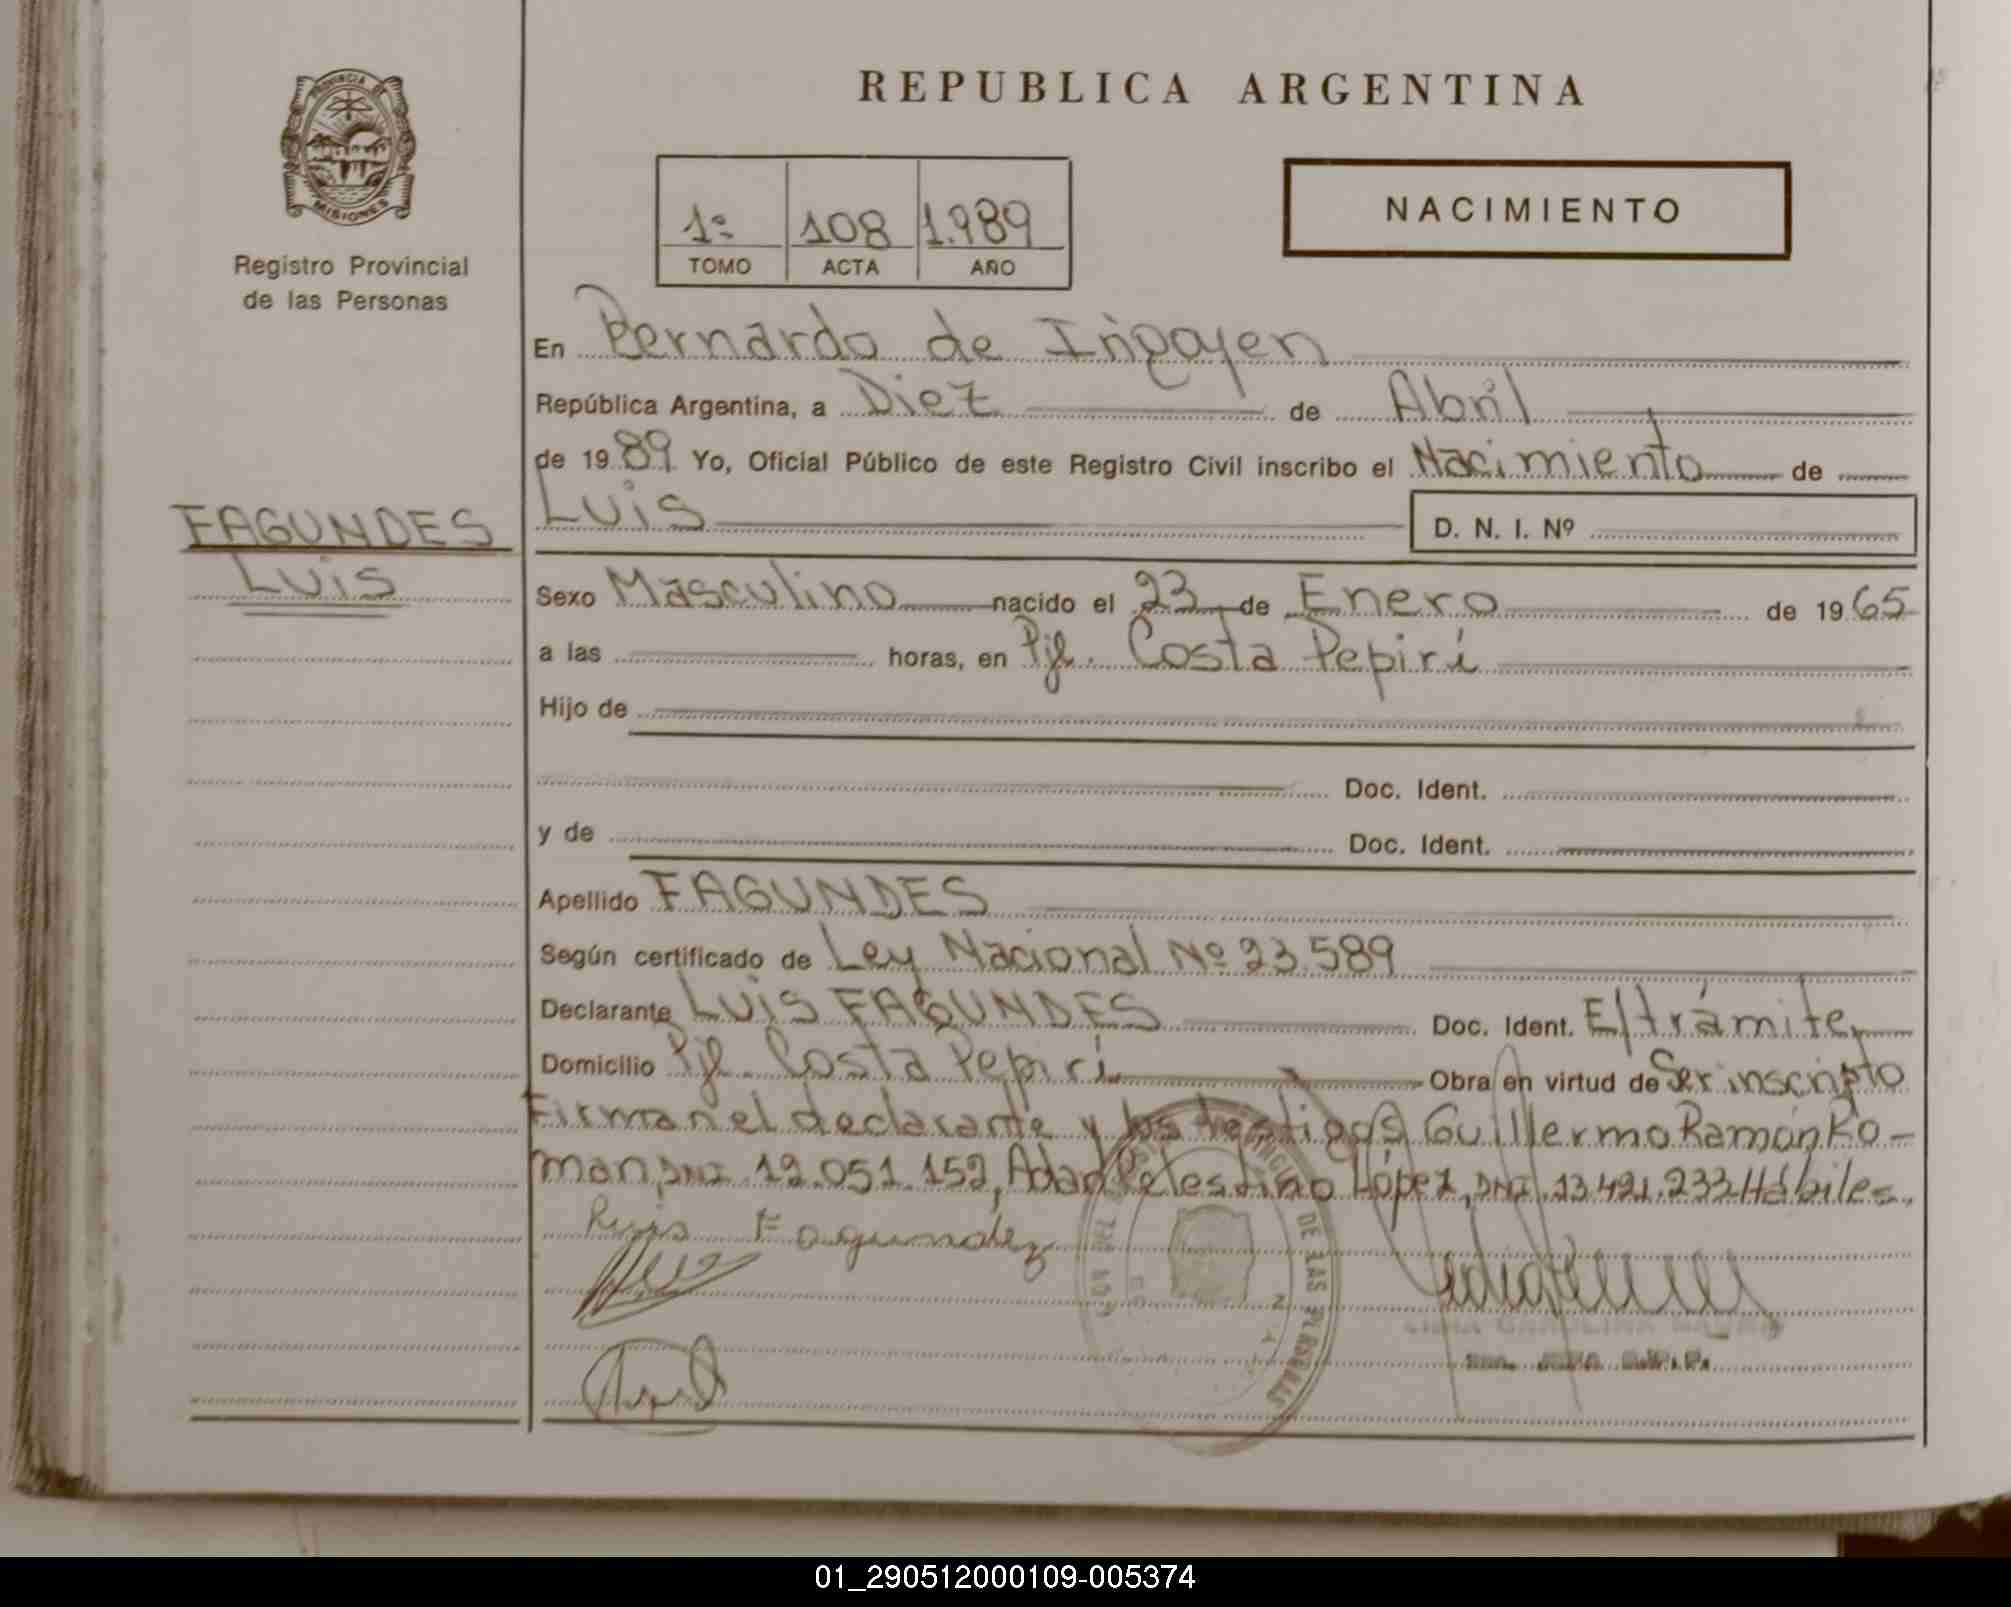 REPUBLICA ARGENTINA
PROVINCIA DE
MISIONES
Registro Provincial
de las Personas
1º 108 1.989
TOMO ACTA AÑO
NACIMIENTO
En Bernardo de Irigoyen
República Argentina, a Diez de Abril
de 1989 Yo, Oficial Público de este Registro Civil inscribo el Nacimiento de
FAGUNDES
Luis
Luis D. N. I. Nº
Sexo Masculino nacido el 23 de Enero de 1965
a las horas, en Pje. Costa Pepirí
Hijo de
Doc. Ident.
y de Doc. Ident.
Apellido FAGUNDES
Según certificado de Ley Nacional Nº 23.589
Declarante LUIS FAGUNDES Doc. Ident. E/trámite,
Domicilio Pje. Costa Pepirí Obra en virtud de Ser inscripto
Firman el declarante y los testigos Guillermo Ramón Ro-
man, DNI. 12.051.152, Adan Celestino López, DNI. 13.421.233 Hábiles.
Luis Fagundez
DE LAS PERSONAS
01_290512000109-005374